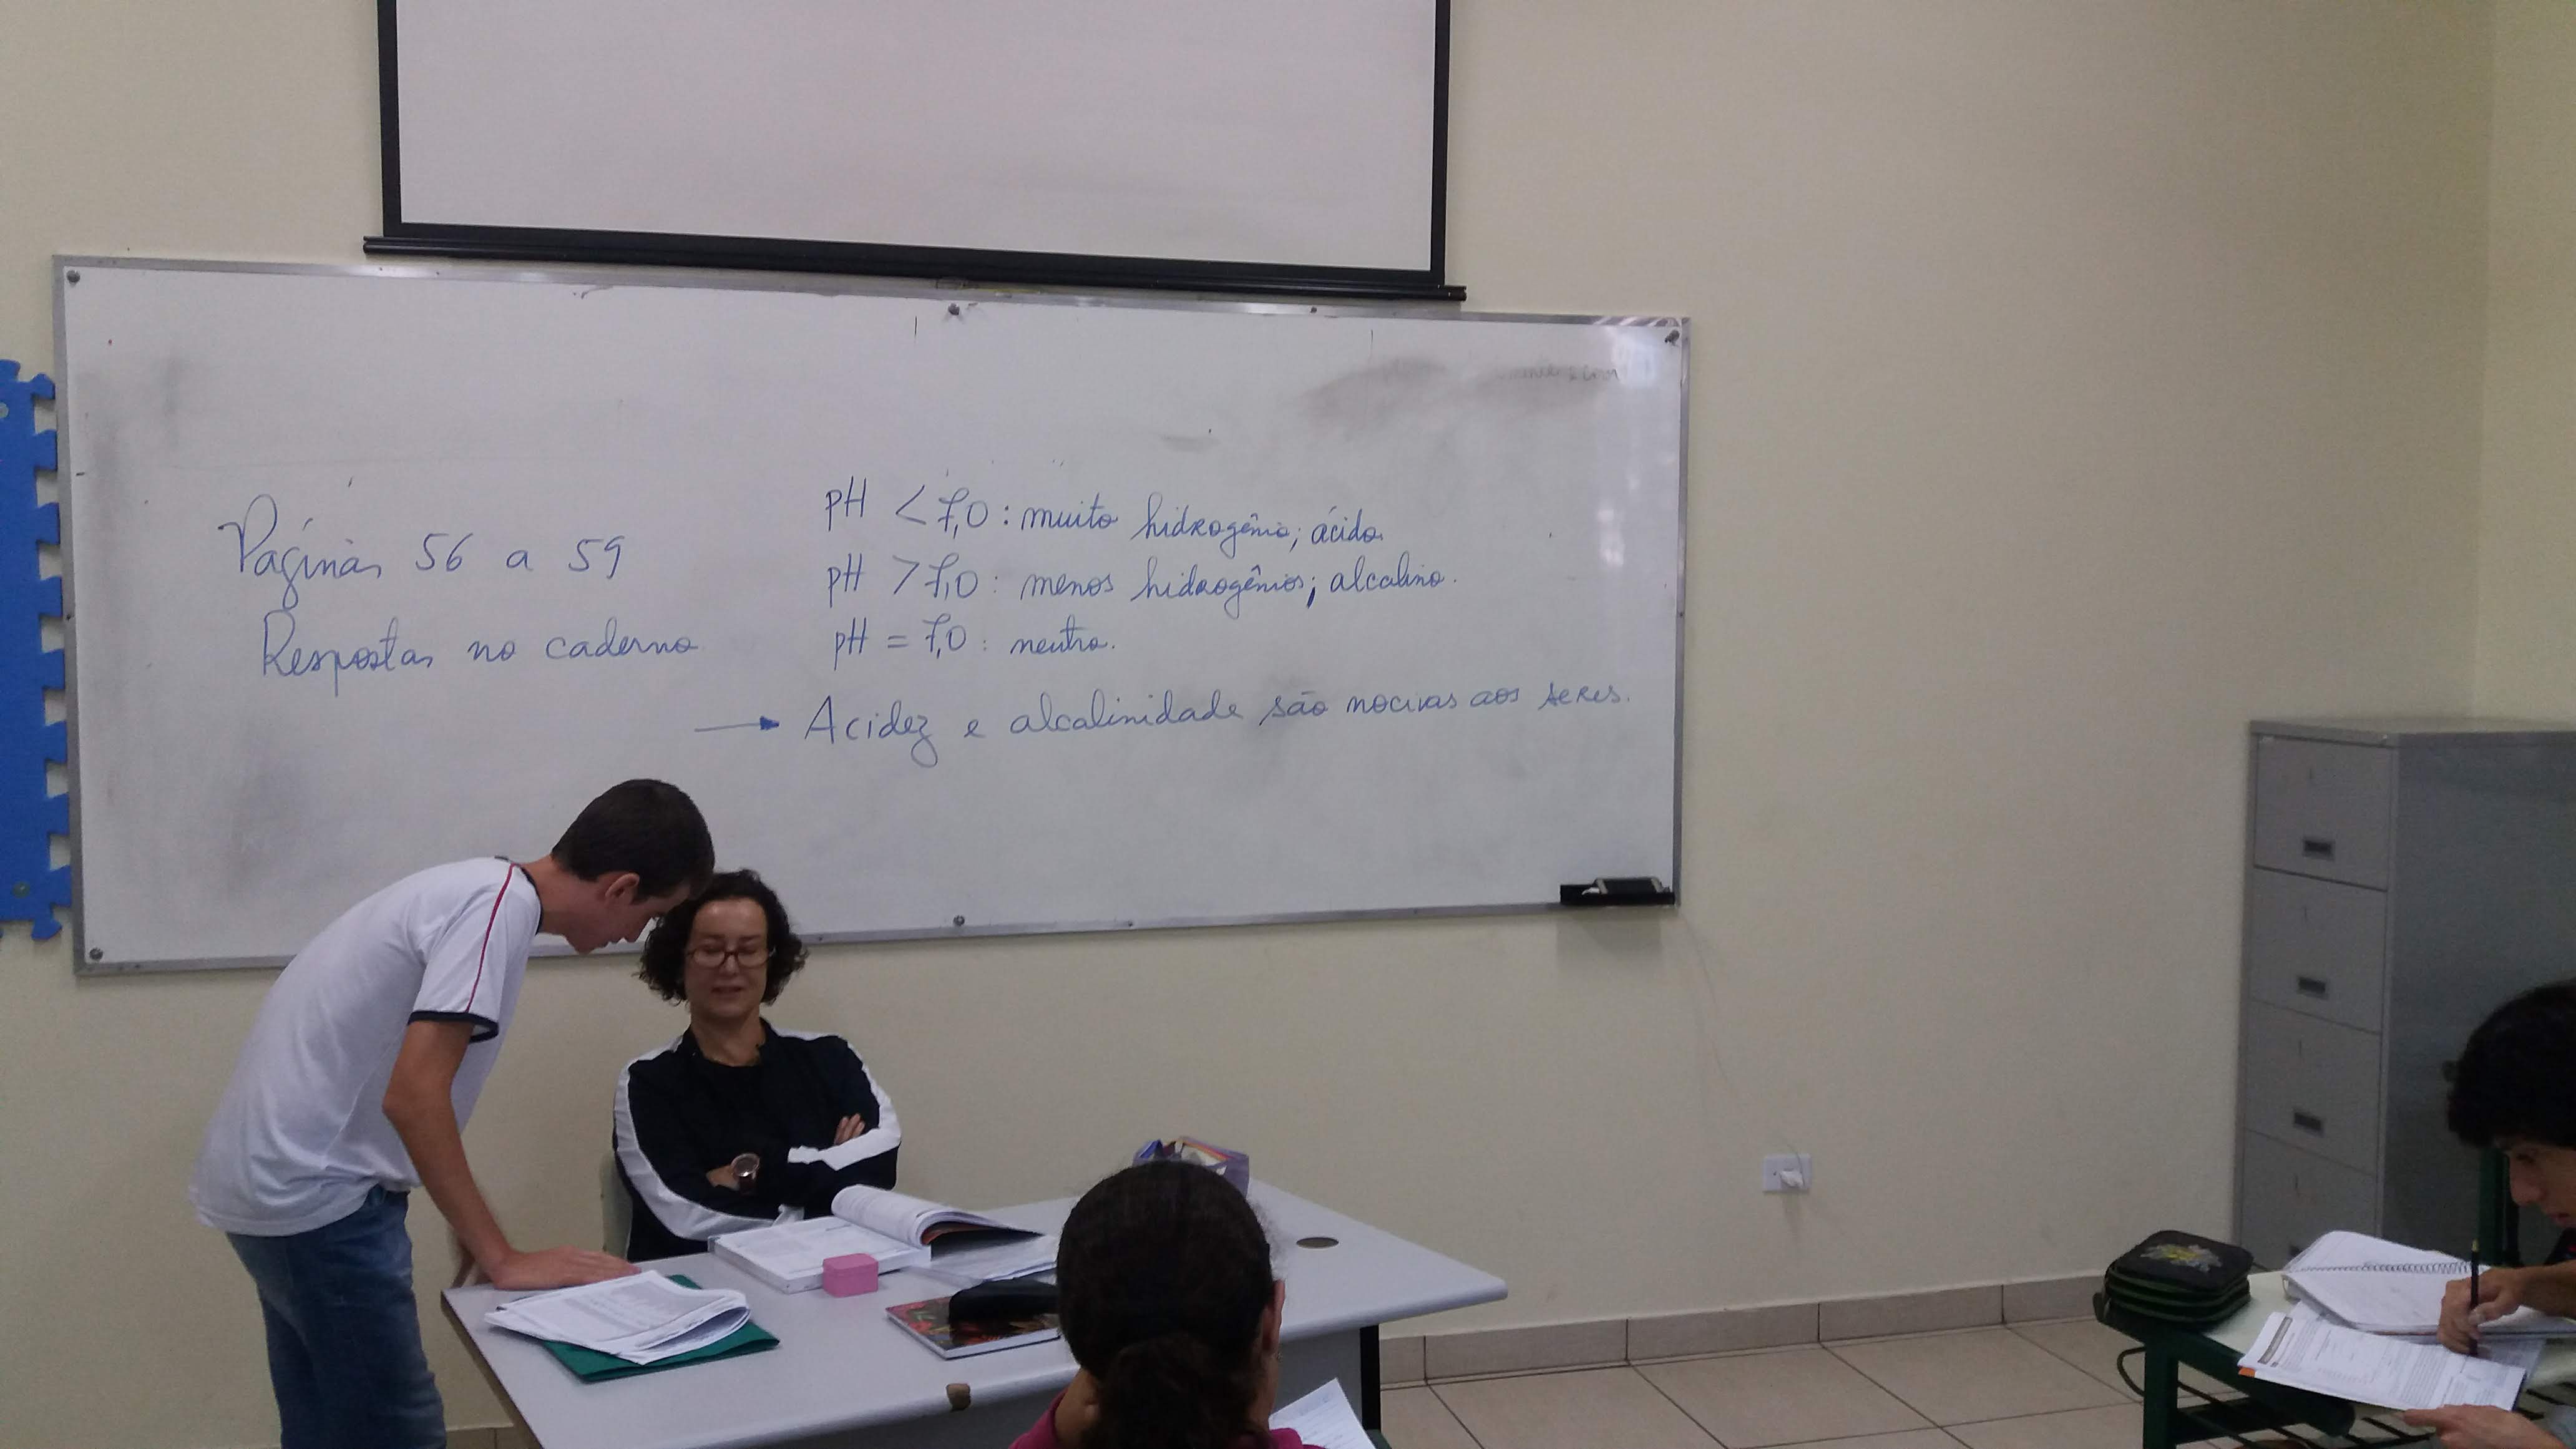 Páginas 56 a 59
Respostas no caderno
pH < 7,0 : muito hidrogênio; ácido.
pH > 7,0 : menos hidrogênios; alcalino.
pH = 7,0 : neutro.
→ Acidez e alcalinidade são nocivas aos seres.